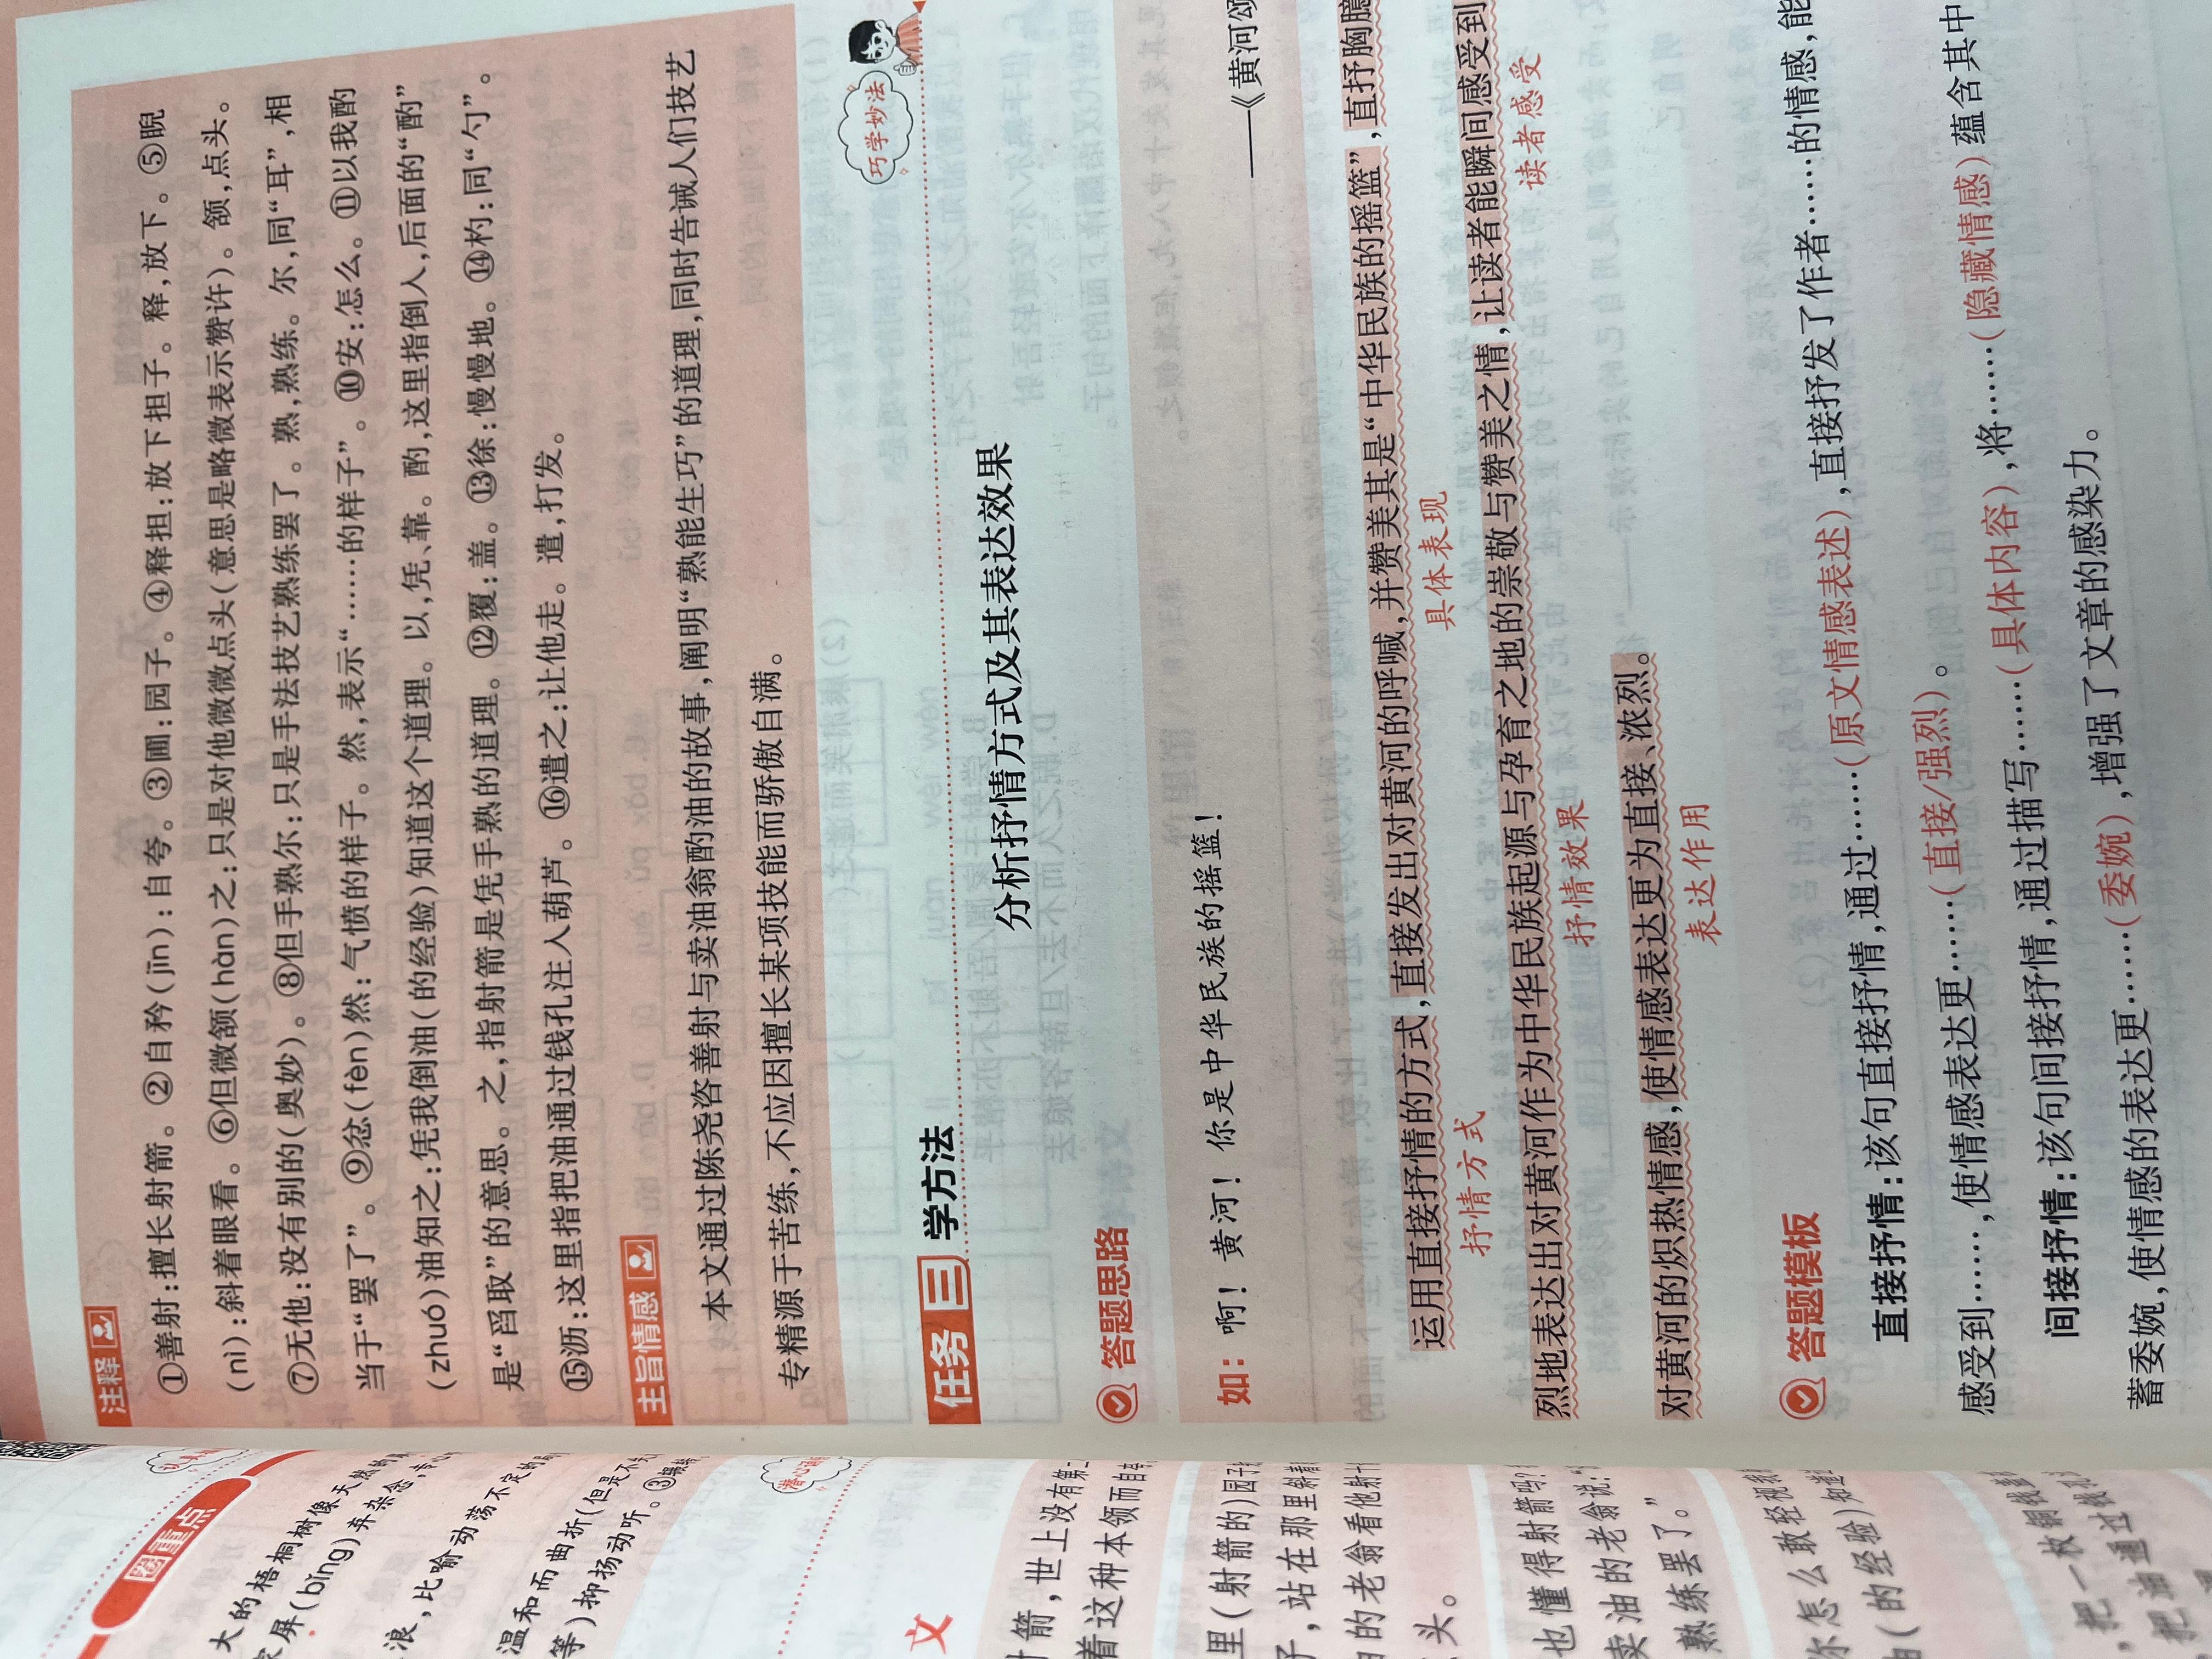 注释
①善射：擅长射箭。②自矜(jīn)：自夸。③圃：园子。④释担：放下担子。释，放下。⑤睨
(nì)：斜着眼看。⑥但微颔(hàn)之：只是对他微微点头(意思是略微表示赞许)。颔，点头。
⑦无他：没有别的(奥妙)。⑧但手熟尔：只是手法技艺熟练罢了。熟，熟练。尔，同“耳”，相
当于“罢了”。⑨忿(fèn)然：气愤的样子。然，表示“……的样子”。⑩安：怎么。⑪以我酌
(zhuó)油知之：凭我倒油(的经验)知道这个道理。以，凭、靠。酌，这里指倒入，后面的“酌”
是“舀取”的意思。之，指射箭是凭手熟的道理。⑫覆：盖。⑬徐：慢慢地。⑭杓：同“勺”。
⑮沥：这里指把油通过钱孔注入葫芦。⑯遣之：让他走。遣，打发。
主旨情感
本文通过陈尧咨善射与卖油翁酌油的故事，阐明“熟能生巧”的道理，同时告诫人们技艺
专精源于苦练，不应因擅长某项技能而骄傲自满。
巧学妙法
任务三 学方法
分析抒情方式及其表达效果
答题思路
如：啊！黄河！你是中华民族的摇篮！
——《黄河颂
运用直接抒情的方式，直接发出对黄河的呼喊，并赞美其是“中华民族的摇篮”，直抒胸臆
抒情方式 具体表现
烈地表达出对黄河作为中华民族起源与孕育之地的崇敬与赞美之情，让读者能瞬间感受到
抒情效果 读者感受
对黄河的炽热情感，使情感表达更为直接、浓烈。
表达作用
答题模板
直接抒情：该句直接抒情，通过……(原文情感表述)，直接抒发了作者……的情感，能
感受到……，使情感表达更……(直接/强烈)。
间接抒情：该句间接抒情，通过描写……(具体内容)，将……(隐藏情感)蕴含其中
蓄委婉，使情感的表达更……(委婉)，增强了文章的感染力。
圈重点
大的梧桐树像天然的
屏(bǐng)弃杂念，专心
浪，比喻动荡不定的
温和而曲折(但是不
等)抑扬动听。③
文
箭，世上没有第
着这种本领而自
里(射箭的)园子
子，站在那里斜着
的老翁看他射十
头。
也懂得射箭吗？
卖油的老翁说：“
熟练罢了。”
你怎么敢轻视我
油(的经验)知道
，把一枚铜钱
，把油通过钱